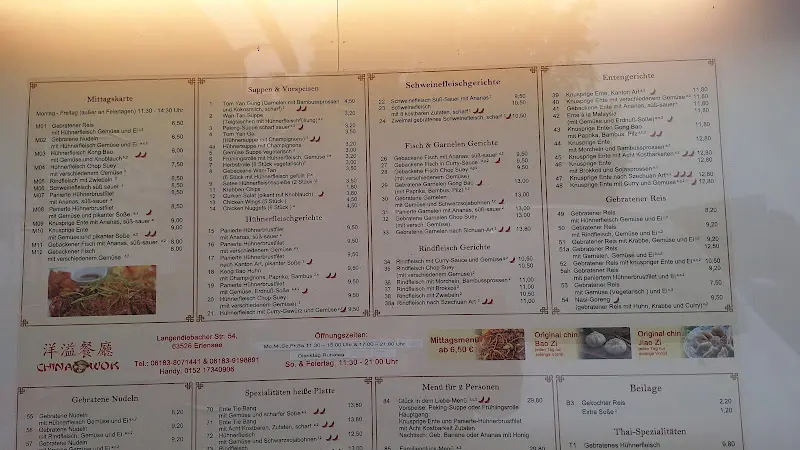 Mittagskarte
Montag - Freitag (außer an Feiertagen) 11:30 - 14:30 Uhr
M01 Gebratener Reis 6,50
mit Hühnerfleisch Gemüse und Ei
M02 Gebratene Nudeln 6,50
mit Hühnerfleisch Gemüse und Ei
M03 Hühnerfleisch Kong Bao 9,00
mit Gemüse und Knoblauch
M04 Hühnerfleisch Chop Suey 7,50
mit verschiedenem Gemüse
M05 Rindfleisch mit Zwiebeln
M06 Schweinefleisch süß-sauer
M07 Panierte Hühnerbrustfilet
mit Ananas, süß-sauer
M08 Panierte Hühnerbrustfilet
mit Gemüse und pikanter Soße
M09 Knusprige Ente mit Ananas, süß-sauer 9,00
M10 Knusprige Ente 9,00
mit Gemüse und pikanter Soße
M11 Gebackener Fisch mit Ananas, süß-sauer 8,00
M12 Gebackener Fisch 8,00
mit verschiedenem Gemüse
Suppen & Vorspeisen
1 Tom Yan Gung (Garnelen mit Bambussprossen 4,50
und Kokosmilch, scharf)
2 Wan Tan Suppe 3,20
(Teigtaschen mit Hühnerfleischfüllung)
3 Peking-Suppe scharf sauer
4 Tom Yan Gai
(Hühnersuppe mit Champignons)
4a Hühnersuppe mit Champignons 3,20
5 Gemüse Suppe Vegetarisch
6 Frühlingsrolle mit Hühnerfleisch, Gemüse
7 Herbstrolle (6 Stück vegetarisch)
8 Gebackene Wan-Tan 3,50
(6 Stück mit Hühnerfleisch gefüllt)
9 Satee Hühnerfleischspieße (2 Stück)
11 Kroepoe Chips
12 Gurken Salat (pikant mit Knoblauch)
13 Chicken Wings (5 Stück)
14 Chicken Nuggets (6 Stück)
Hühnerfleischgerichte
15 Panierte Hühnerbrustfilet 9,50
mit Ananas, süß-sauer
16 Panierte Hühnerbrustfilet 9,50
mit verschiedenem Gemüse
17 Panierte Hühnerbrustfilet 9,50
nach Kanton Art, pikanter Soße
18 Kong Bao Huhn 9,50
mit Champignons, Paprika, Bambus
19 Panierte Hühnerbrustfilet 9,50
mit Gemüse, Erdnuß-Soße
20 Hühnerfleisch Chop Suey 9,50
(mit verschiedenem Gemüse)
21 Hühnerfleisch mit Curry-Gewürz und Gemüse 9,50
Schweinefleischgerichte
22 Schweinefleisch Süß-Sauer mit Ananas 9,50
23 Schweinefleisch 10,50
mit 8 kostbaren Zutaten, scharf
24 Zweimal gebratenes Schweinefleisch, scharf 10,50
Fisch & Garnelen Gerichte
26 Gebackene Fisch mit Ananas, süß-sauer 9,50
27 Gebackene Fisch in Curry-Sauce 9,50
28 Gebackene Fisch Chop Suey 9,50
(mit verschiedenem Gemüse)
29 Gebratene Garnelen Gong Bao 13,00
(mit Paprika, Bambus, Pilz)
30 Gebratene Garnelen 13,00
mit Gemüse und Schwarzsojabohnen
31 Panierte Garnelen mit Ananas, süß-sauer 13,00
32 Gebratene Garnelen Chop Suey 13,00
(mit versch. Gemüse)
33 Gebratene Garnelen nach Sichuan Art 13,80
Rindfleisch Gerichte
34 Rindfleisch mit Curry-Sauce und Gemüse 10,50
35 Rindfleisch Chop Suey 10,50
(mit verschiedenem Gemüse)
36 Rindfleisch mit Morcheln, Bambussprossen 11,00
37 Rindfleisch mit Brokkoli 11,00
38 Rindfleisch mit Zwiebeln 10,50
38a Rindfleisch nach Szechuan Art 11,50
Entengerichte
39 Knusprige Ente, Kanton Art 11,80
40 Knusprige Ente mit verschiedenem Gemüse 11,80
41 Gebackene Ente mit Ananas, süß-sauer 11,80
42 Ente à la Malaysia
(mit Gemüse und Erdnuß-Soße)
43 Knusprige Enten Gong Bao
mit Paprika, Bambus, Pilz
44 Knusprige Ente 12,80
mit Morcheln und Bambussprossen
45 Knusprige Ente mit Acht Kostbarkeiten
46 Knusprige Ente
mit Brokkoli und Sojasprossen
47 Knusprige Ente nach Szechuan Art 12,80
48 Knusprige Ente mit Curry und Gemüse 12,80
Gebratener Reis
49 Gebratener Reis 8,20
mit Hühnerfleisch Gemüse und Ei
50 Gebratener Reis 9,20
mit Rindfleisch, Gemüse und Ei
51 Gebratener Reis mit Krabbe, Gemüse und Ei 9,20
51a Gebratener Reis 12,50
mit Garnelen, Gemüse und Ei
52 Gebratener Reis mit knuspriges Ente und Ei 10,50
mit paniertem Hühnerbrustfilet und Ei
53 Gebratener Reis 7,50
mit Gemüse (Vegetarisch) und Ei
54 Nasi-Goreng 9,50
(gebratener Reis mit Huhn, Krabbe und Curry)
洋溢餐廳
CHINA WOK
Langendiebacher Str. 54,
63526 Erlensee
Tel.: 06183-8071441 & 06183-9198891
Handy. 0152 17340906
Öffnungszeiten:
Dienstag Ruhetag
So. & Feiertag: 11:30 - 21:00 Uhr
Mittagsmenü
ab 6,50 €
Original chin
Bao Zi
Original chin
Jiao Zi
Gebratene Nudeln
55 Gebratene Nudeln 8,20
mit Hühnerfleisch Gemüse und Ei
56 Gebratene Nudeln 9,20
mit Rindfleisch, Gemüse und Ei
57 Gebratene Nudeln 9,20
Spezialitäten heiße Platte
70 Ente Tie Bang 13,80
mit Gemüse und scharfer Soße
71 Ente Tie Bang 13,80
mit Acht Kostbaren, Zutaten, scharf
72 Hühnerfleisch 12,50
mit Gemüse und Schwarzsojabohnen
73 Rindfleisch
Menü für 2 Personen
84 Glück in dem Liebe-Menü 29,80
Vorspeise: Peking-Suppe oder Frühlingsrolle
Hauptgang:
Knusprige Ente und Panierte-Hühnerbrustfilet
mit Acht Kostbarkeit Zutaten
Nachtisch: Geb. Banane oder Ananas mit Honig
Beilage
B3 Gekochter Reis 2,20
Extra Soße 2,20
Thai-Spezialitäten
T1 Gebratenes Hühnerfleisch 9,80